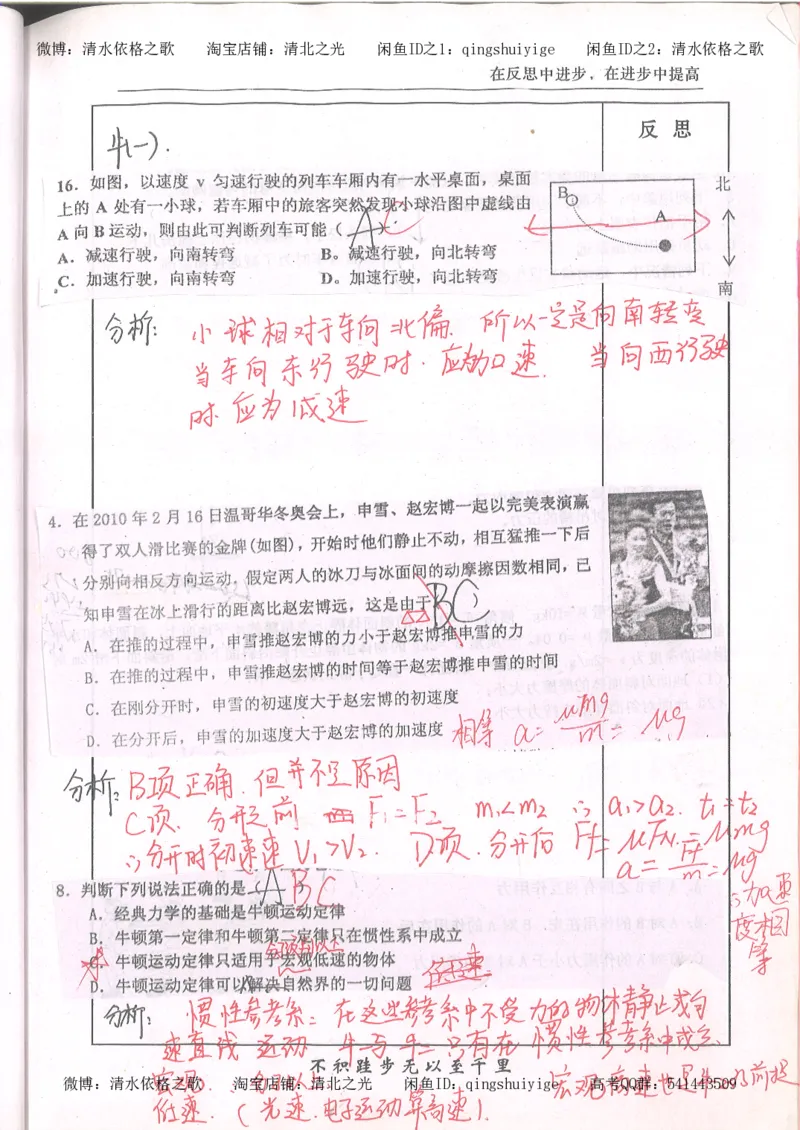 微博：清水依格之歌 淘宝店铺：清北之光 闲鱼ID之1：qingshuiyige 闲鱼ID之2：清水依格之歌
在反思中进步，在进步中提高
反 思
牛(一).
16．如图，以速度 v 匀速行驶的列车车厢内有一水平桌面，桌面
上的 A 处有一小球，若车厢中的旅客突然发现小球沿图中虚线由
A 向 B 运动，则由此可判断列车可能（ A ） C
A．减速行驶，向南转弯 B。减速行驶，向北转弯
C．加速行驶，向南转弯 D。加速行驶，向北转弯
B
A
北
南
分析：小球相对于车向北偏．所以一定是向南转弯
当车向东行驶时．应为加速． 当向西行驶
时应为减速
4．在 2010 年 2 月 16 日温哥华冬奥会上，申雪、赵宏博一起以完美表演赢
得了双人滑比赛的金牌(如图)，开始时他们静止不动，相互猛推一下后
分别向相反方向运动．假定两人的冰刀与冰面间的动摩擦因数相同，已
知申雪在冰上滑行的距离比赵宏博远，这是由于 BC
A．在推的过程中，申雪推赵宏博的力小于赵宏博推申雪的力
B．在推的过程中，申雪推赵宏博的时间等于赵宏博推申雪的时间
C．在刚分开时，申雪的初速度大于赵宏博的初速度
D．在分开后，申雪的加速度大于赵宏博的加速度 相等 a=μmg/m=μg
分析：B项正确．但并不是原因
C项．分开之前 F₁=F₂ m₁<m₂ ∴ a₁>a₂. t₁=t₂
∴分开时初速 V₁>V₂. D项．分开后 Ff=μFN=μmg
a=Ff/m=μg
∴加速度相等
8．判断下列说法正确的是（ A ） BC
A．经典力学的基础是牛顿运动定律
B．牛顿第一定律和牛顿第二定律只在惯性系中成立
C．牛顿运动定律只适用于宏观低速的物体
D．牛顿运动定律可以解决自然界的一切问题 低速
分析：惯性参考系：在这些参考系中不受力的物体静止或匀
速直线运动 牛一与牛二只有在惯性参考系中成立
不积跬步无以至千里
微博：清水依格之歌 淘宝店铺：清北之光 闲鱼ID：qingshuiyige 高考QQ群：541443509
低速．（光速．电子运动算高速）．